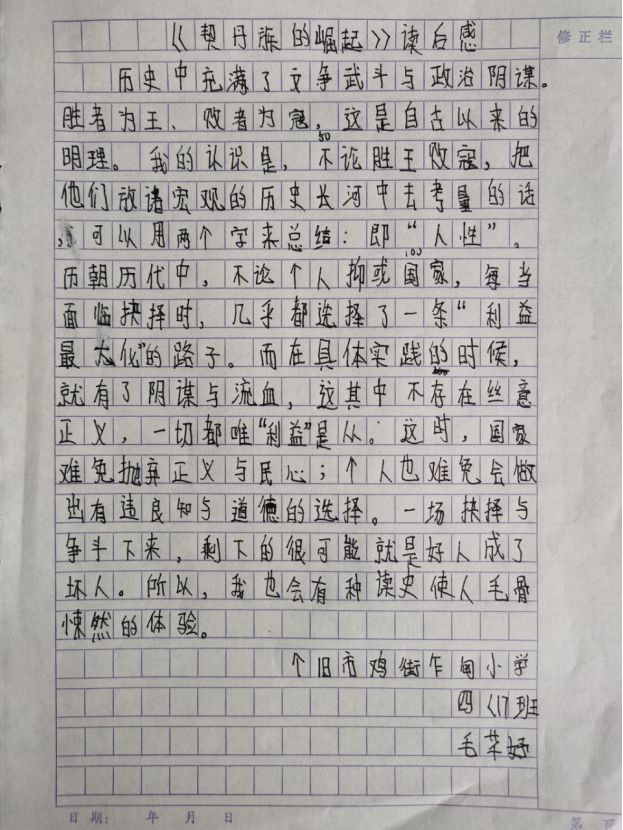 修正栏
《契丹族的崛起》读后感
历史中充满了文争武斗与政治阴谋。
胜者为王、败者为寇，这是自古以来的
50
明理。我的认识是，不论胜王败寇，把
他们放诸宏观的历史长河中去考量的话
，可以用两个字来总结：即“人性”。
100
历朝历代中，不论个人抑或国家，每当
面临抉择时，几乎都选择了一条“利益
最大化”的路子。而在具体实践的时候，
就有了阴谋与流血，这其中不存在丝意
正义，一切都唯“利益”是从。这时，国家
难免抛弃正义与民心；个人也难免会做
出有违良知与道德的选择。一场抉择与
争斗下来，剩下的很可能就是好人成了
坏人。所以，我也会有种读史使人毛骨
悚然的体验。
个旧市鸡街乍甸小学
四（1）班
毛芊妤
日期： 年 月 日
第 页